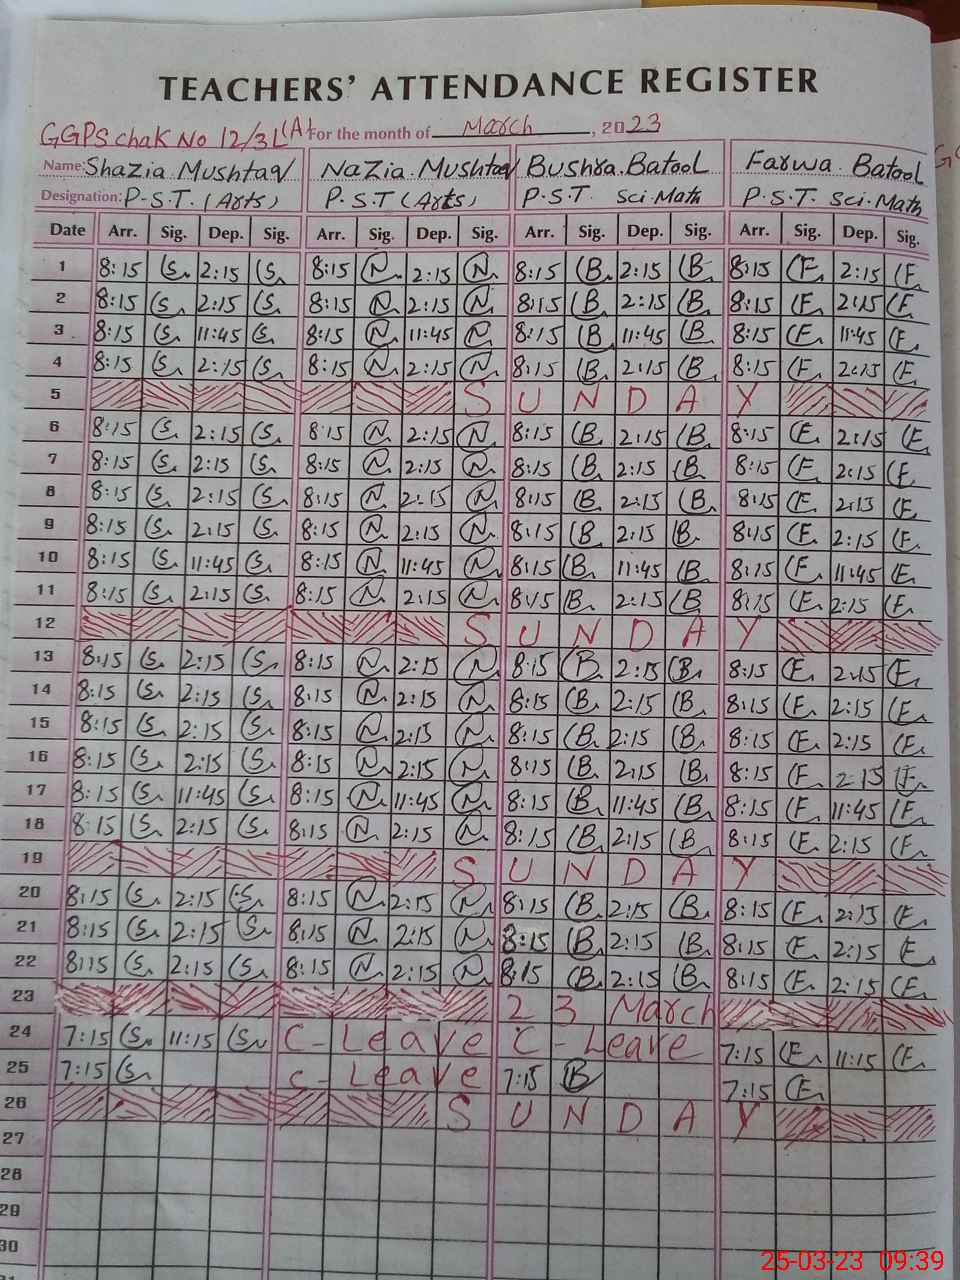 TEACHERS' ATTENDANCE REGISTER
GGPS chak No 12/3L(A) For the month of March, 2023
Name: Shazia Mushtaq Nazia Mushtaq Bushra Batool Farwa Batool
Designation: P.S.T. (Arts) P.S.T (Arts) P.S.T. Sci.Math P.S.T. Sci.Math
Date Arr. Sig. Dep. Sig. Arr. Sig. Dep. Sig. Arr. Sig. Dep. Sig. Arr. Sig. Dep. Sig.
1 8:15 S 2:15 S 8:15 N 2:15 N 8:15 B 2:15 B 8:15 F 2:15 F
2 8:15 S 2:15 S 8:15 N 2:15 N 8:15 B 2:15 B 8:15 F 2:15 F
3 8:15 S 11:45 S 8:15 N 11:45 N 8:15 B 11:45 B 8:15 F 11:45 F
4 8:15 S 2:15 S 8:15 N 2:15 N 8:15 B 2:15 B 8:15 F 2:15 F
5 SUNDAY
6 8:15 S 2:15 S 8:15 N 2:15 N 8:15 B 2:15 B 8:15 F 2:15 F
7 8:15 S 2:15 S 8:15 N 2:15 N 8:15 B 2:15 B 8:15 F 2:15 F
8 8:15 S 2:15 S 8:15 N 2:15 N 8:15 B 2:15 B 8:15 F 2:15 F
9 8:15 S 2:15 S 8:15 N 2:15 N 8:15 B 2:15 B 8:15 F 2:15 F
10 8:15 S 11:45 S 8:15 N 11:45 N 8:15 B 11:45 B 8:15 F 11:45 F
11 8:15 S 2:15 S 8:15 N 2:15 N 8:15 B 2:15 B 8:15 F 2:15 F
12 SUNDAY
13 8:15 S 2:15 S 8:15 N 2:15 N 8:15 B 2:15 B 8:15 F 2:15 F
14 8:15 S 2:15 S 8:15 N 2:15 N 8:15 B 2:15 B 8:15 F 2:15 F
15 8:15 S 2:15 S 8:15 N 2:15 N 8:15 B 2:15 B 8:15 F 2:15 F
16 8:15 S 2:15 S 8:15 N 2:15 N 8:15 B 2:15 B 8:15 F 2:15 F
17 8:15 S 11:45 S 8:15 N 11:45 N 8:15 B 11:45 B 8:15 F 11:45 F
18 8:15 S 2:15 S 8:15 N 2:15 N 8:15 B 2:15 B 8:15 F 2:15 F
19 SUNDAY
20 8:15 S 2:15 S 8:15 N 2:15 N 8:15 B 2:15 B 8:15 F 2:15 F
21 8:15 S 2:15 S 8:15 N 2:15 N 8:15 B 2:15 B 8:15 F 2:15 F
22 8:15 S 2:15 S 8:15 N 2:15 N 8:15 B 2:15 B 8:15 F 2:15 F
23 23 March
24 7:15 S 11:15 S C-Leave C-Leave 7:15 F 11:15 F
25 7:15 S C-Leave 7:15 B 7:15 F
26 SUNDAY
27
28
29
30
25-03-23 09:39